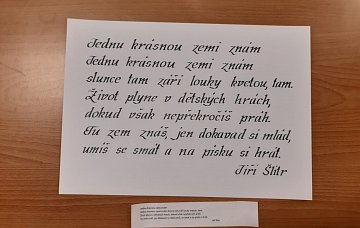 Jednu krásnou zemi znám
Jednu krásnou zemi znám
slunce tam září louky kvetou, tam.
Život plyne v dětských hrách,
dokud však nepřekročíš práh.
Tu zem znáš, jen dokavad si mlád,
umíš se smát a na písku si hrát.
Jiří Šlitr